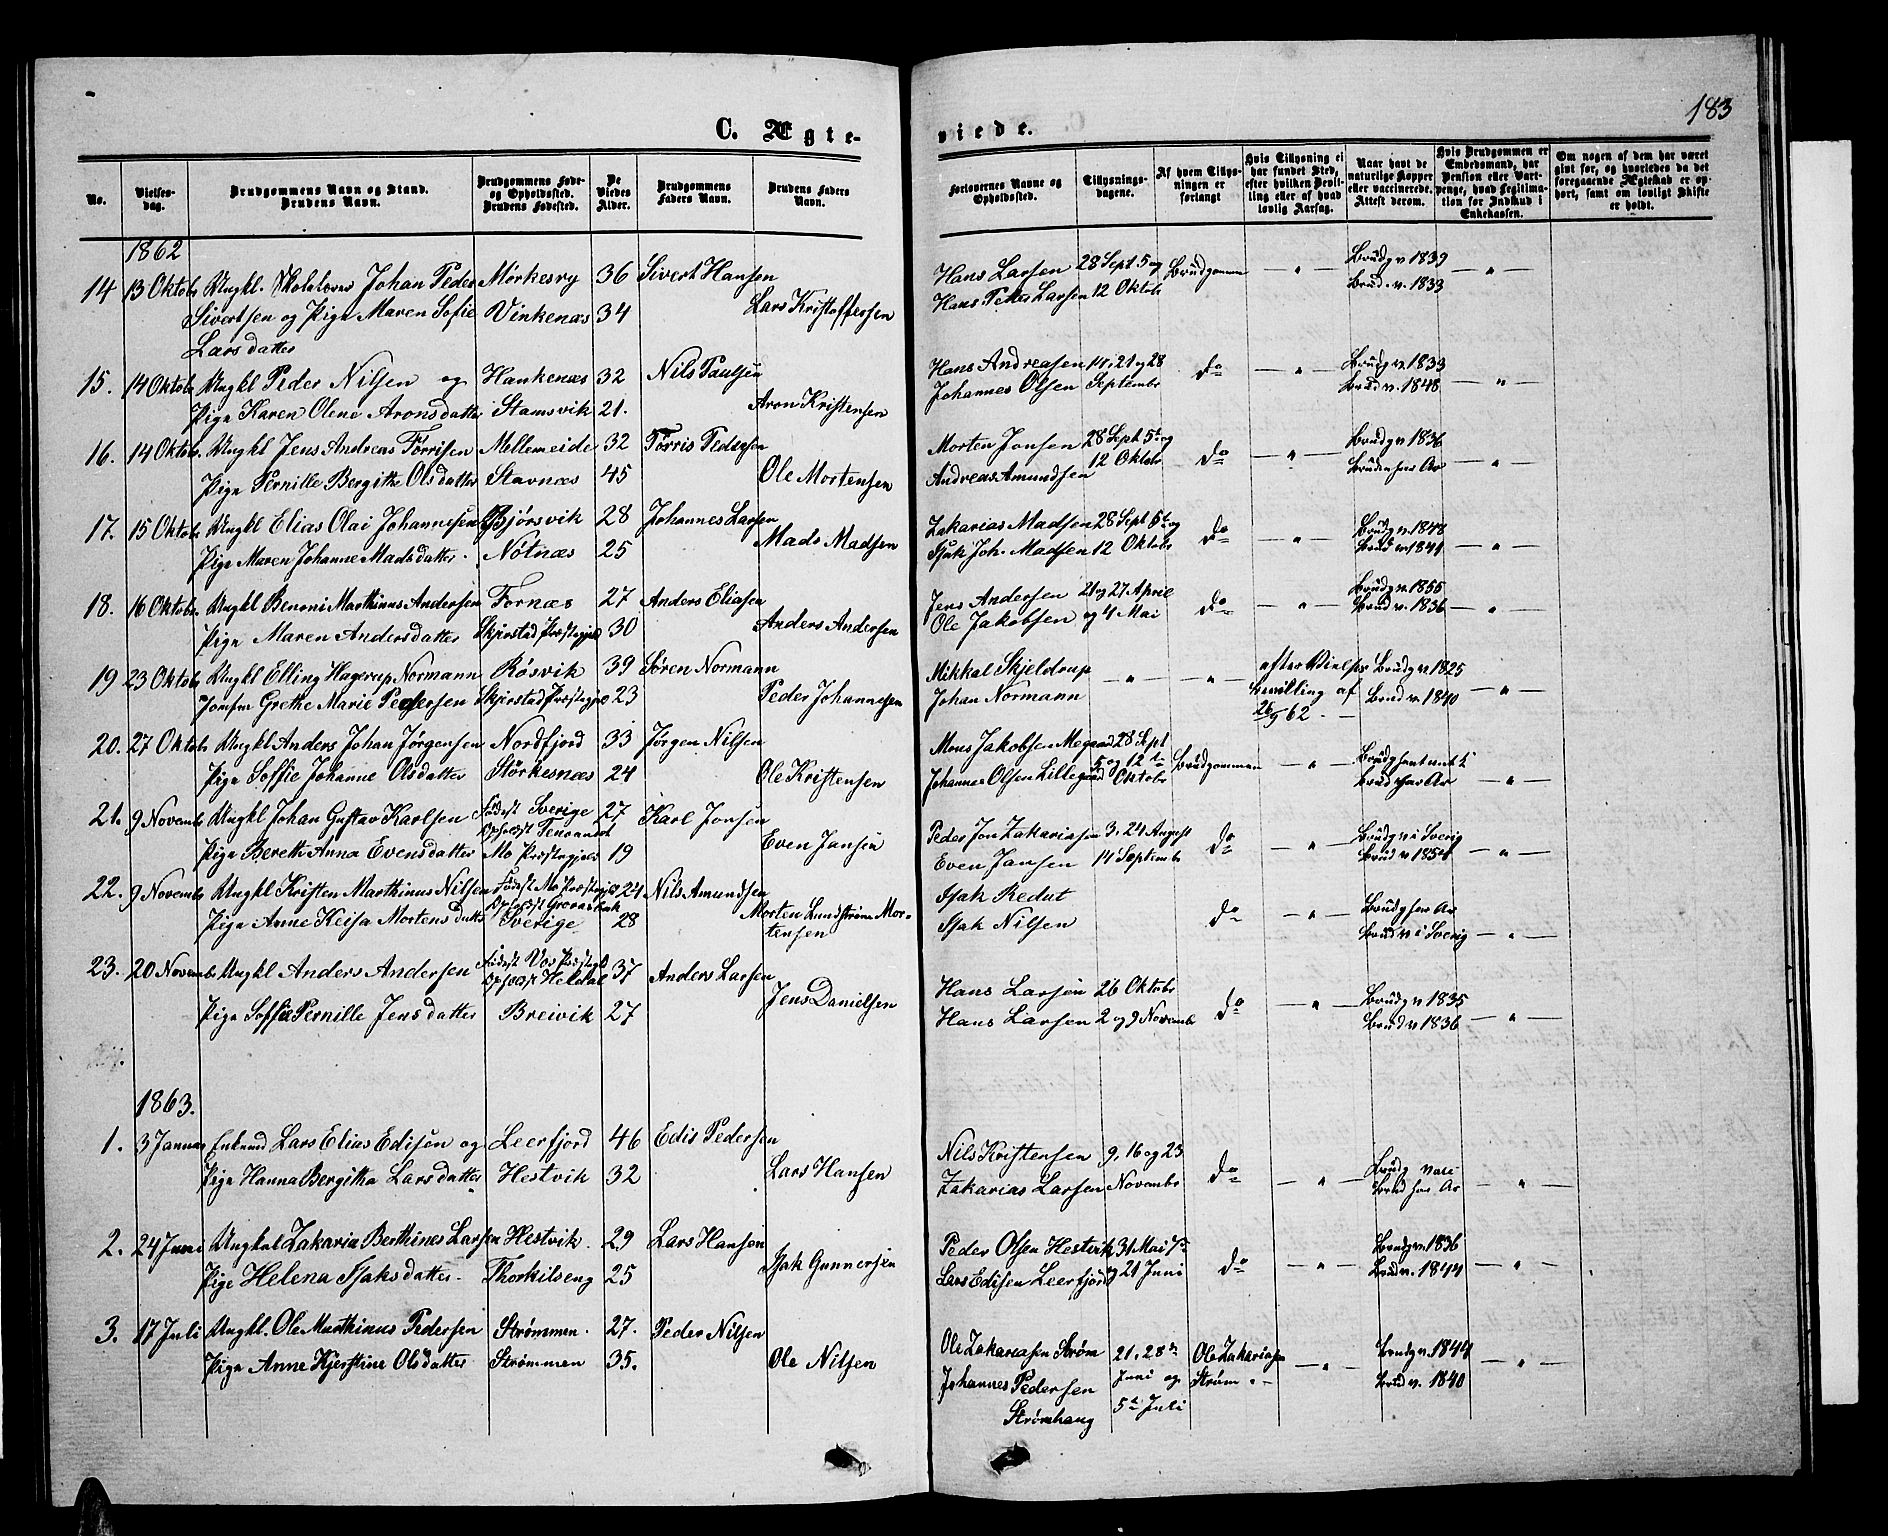 183
C. Ægte-
viede.
No.
Vielses-
dag.
Brudgommens Navn og Stand.
Brudens Navn.
Brudgommens Føde-
og Opholdssted.
Brudens Fødested.
De
Viedes
Alder.
Brudgommens
Faders Navn.
Brudens Faders
Navn.
Forlovernes Navne og
Opholdssted.
Tillysnings-
dagene.
Af hvem Tillys-
ningen er
forlangt
Hvis Tillysning ei
har fundet Sted,
efter hvilken Bevil-
ling eller af hvad
lovlig Aarsag.
Naar havt de
naturlige Kopper
eller vaccinerede.
Attest derom.
Hvis Brudgommen er
Embedsmand, har
Pension eller Vart-
penge, hvad Legitima-
tion for Indskud i
Enkekassen.
Om nogen af dem har været
givt før, og hvorledes da det
foregaaende Ægteskab er op-
hørt, samt om lovligt Skifte
er holdt.
1862
14 13 Oktobr Ungkl. Skolelærer Johan Peder Mörkesvg 36 Sivert Hansen
Sivertsen og Pige Maren Sofie Vinkenæs 34 Lars Kristoffersen
Larsdatter
Hans Larsen 28 Sept 5 og Brudgommen — " — Brudg v 1839 — " —
Hans Peter Larsen 12 Oktobr Brud. v. 1833
15. 14 Oktobr Ungkl Peder Nilsen og Hankenæs 32 Nils Paulsen
Pige Karen Olene Aronsdatter Stamsvik 21. Aron Kristensen
Hans Andreasen 14, 21 og 28 do — " — Brudg v. 1833
Johannes Olsen Septembr Brud v. 1848 — " —
16. 14 Oktobr. Ungkl Jens Andreas Törrisen Mellemeide 32 Törris Pedersen
Pige Pernille Bergitte Olsdatter Stavnæs 45 Ole Mortensen
Morten Jonsen 28 Sept 5te og do — " — Brudg v 1836
Andreas Amundsen 12 Oktobr Bruden har Ar — " —
17. 15 Oktobr Ungkl Elias Olai Johannesen Bjørsvik 28 Johannes Larsen
Pige Maren Johanne Madsdatter. Nötnæs 25 Mads Madsen
Zakarias Madsen 28 Sept 5te og do — " — Brudg v. 1848
Isak Joh. Madsen 12 Oktobr Brud v. 1844 — " —
18. 16 Oktobr. Ungkl Benoni Marthinus Andersen Fornæs 27 Anders Eliasen
Pige Maren Andersdatter Skjerstad Præstegjeld 30 Anders Andersen
Jens Andersen 21 og 27 April do — " — Brudg v. 1855
Ole Jakobsen og 4 Mai Brud v. 1836 — " —
19 23 Oktobr Ungkl Elling Hagerup Normann Rösvik 39 Sören Normann
Jomfru Grethe Marie Pedersen Skjerstad Præstegjeld 23 Peder Johannesen
Mikkal Skjeldrup — " — — " — efter Vielses Brudg v. 1825
Johan Normann bevilling af Brud v. 1840 — " —
26/9 62. —
20. 27 Oktobr Ungkl Anders Johan Jørgensen Nordfjord 33 Jørgen Nilsen
Pige Soffie Johanne Olsdatter Störkesnæs 24 Ole Kristensen
Mons Jakobsen Megaard 28 Sept Brudgommen — " —
Johannes Olsen Lillegaard 5 og 12te Oktobr Brud har Ar — " —
21. 9 Novembr Ungkl Johan Gustav Karlsen Födest Sverige 27 Karl Jonsen
Pige Bereth Anna Evensdatter Mo Præstegjeld 19 Even Jansen
Peder Jon Zakariasen 3, 24 August do — " — Brudg v i Sverig
Even Jansen 14 Septembr Brud v 1854 — " —
22. 9 Novembr Ungkl Kristen Marthinus Nilsen Födest Mo Præstegjeld 24 Nils Amundsen
Pige Anne Keisa Mortensdatter Sverige 28 Morten Lundström Mor-
tensen
Isak Redut do — " — Brudg har Ar
Isak Nilsen Brud v i Sverig — " —
23. 20 Novembr Ungkl Anders Andersen Födest Vos Præstegjeld 37 Anders Larsen
Opholdst Heldal
Pige Soffie Pernille Jensdatter Breivik 27 Jens Danielsen
Hans Larsen 26 Oktobr do — " — Brudg v 1835
Hans Larsen 2 og 9 Novembr Brud v 1836 — " —
1863.
1. 3 Januar Enkemd Lars Elias Edisen og Leerfjord 46 Edis Pedersen
Pige Hanna Bergitha Larsdatter Hestvik 32 Lars Hansen
Nils Kristensen 9, 16 og 23 do — " — Brudg vac:
Zakarias Larsen Novembr Brud har Ar — " —
2. 24 Juni Ungkal Zakaria Berthines Larsen Hestvik. 29 Lars Hansen
Pige Helena Isaksdatter. Thorkilseng 25 Isak Gunnersen
Peder Olsen Hestvik 31 Mai 7de do — " — Brudg v. 1836
Lars Edisen Leerfjord og 21 Juni Brud v. 1844 — " —
3. 17 Juli Ungkl. Ole Marthinus Pedersen Strømmen. 27. Peder Nilsen
Pige Anne Kjerstine Olsdatter Strømmen 35. Ole Nilsen
Ole Zakariasen Strøm 21, 28de Ole Zakariasen — " — Brudg v. 1844 — " —
Johannes Pedersen Juni og Strøm. — Brud v. 1840
Strømhaug 5te Juli